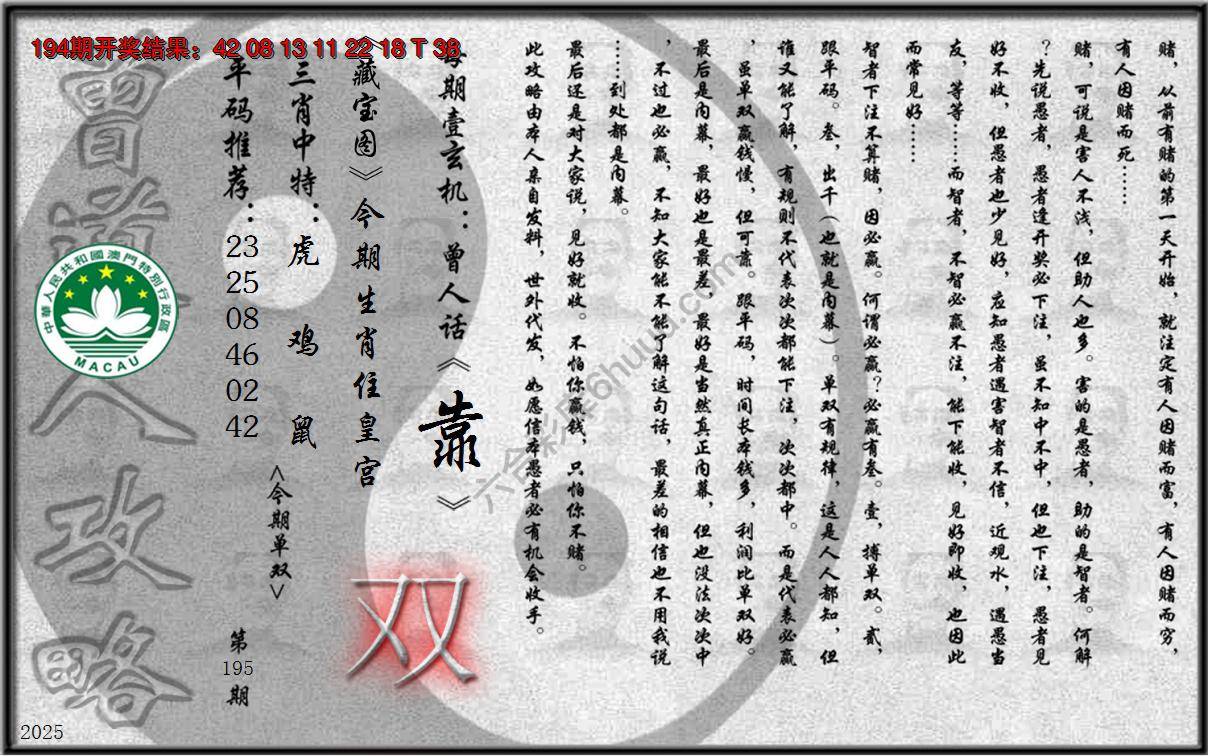 194期开奖结果：42 08 13 11 22 18 T 38
赌，从前有赌的第一天开始，就注定有人因赌而富，有人因赌而穷，
有人因赌而死……
赌，可说是害人不浅，但助人也多。害的是愚者，助的是智者。何解
？先说愚者，愚者逢开奖必下注，虽不知中不中，但也下注，愚者见
好不收，但愚者也少见好，应知愚者遇害智者不信，近观水，遇愚当
友，等等……而智者，不智必赢不注，能下能收，见好即收，也因此
而常见好……
智者下注不算赌，因必赢。何谓必赢？必赢有叁。壹，搏单双。贰，
跟平码。叁，出千（也就是内幕）。单双有规律，这是人人都知，但
谁又能了解，有规则不代表次次都能下注，次次都中。而是代表必赢
，虽单双赢钱慢，但可靠。跟平码，时间长本钱多，利润比单双好。
最后是内幕，最好也是最差，最好是当然真正内幕，但也没法次次中
，不过也必赢，不知大家能不能了解这句话，最差的相信也不用我说
……到处都是内幕。
最后还是对大家说，见好就收。不怕你赢钱，只怕你不赌。
此攻略由本人亲自发料，世外代发，如愿信本愚者必有机会收手。
每期壹玄机：曾人话《靠》
《藏宝图》今期生肖住皇宫
双
三肖中特：虎 鸡 鼠
<今期单双>
平码推荐：23 25 08 46 02 42
第195期
曾道人攻略
中華人民共和國澳門特別行政區
MACAU
六合彩库6huuu.com
2025